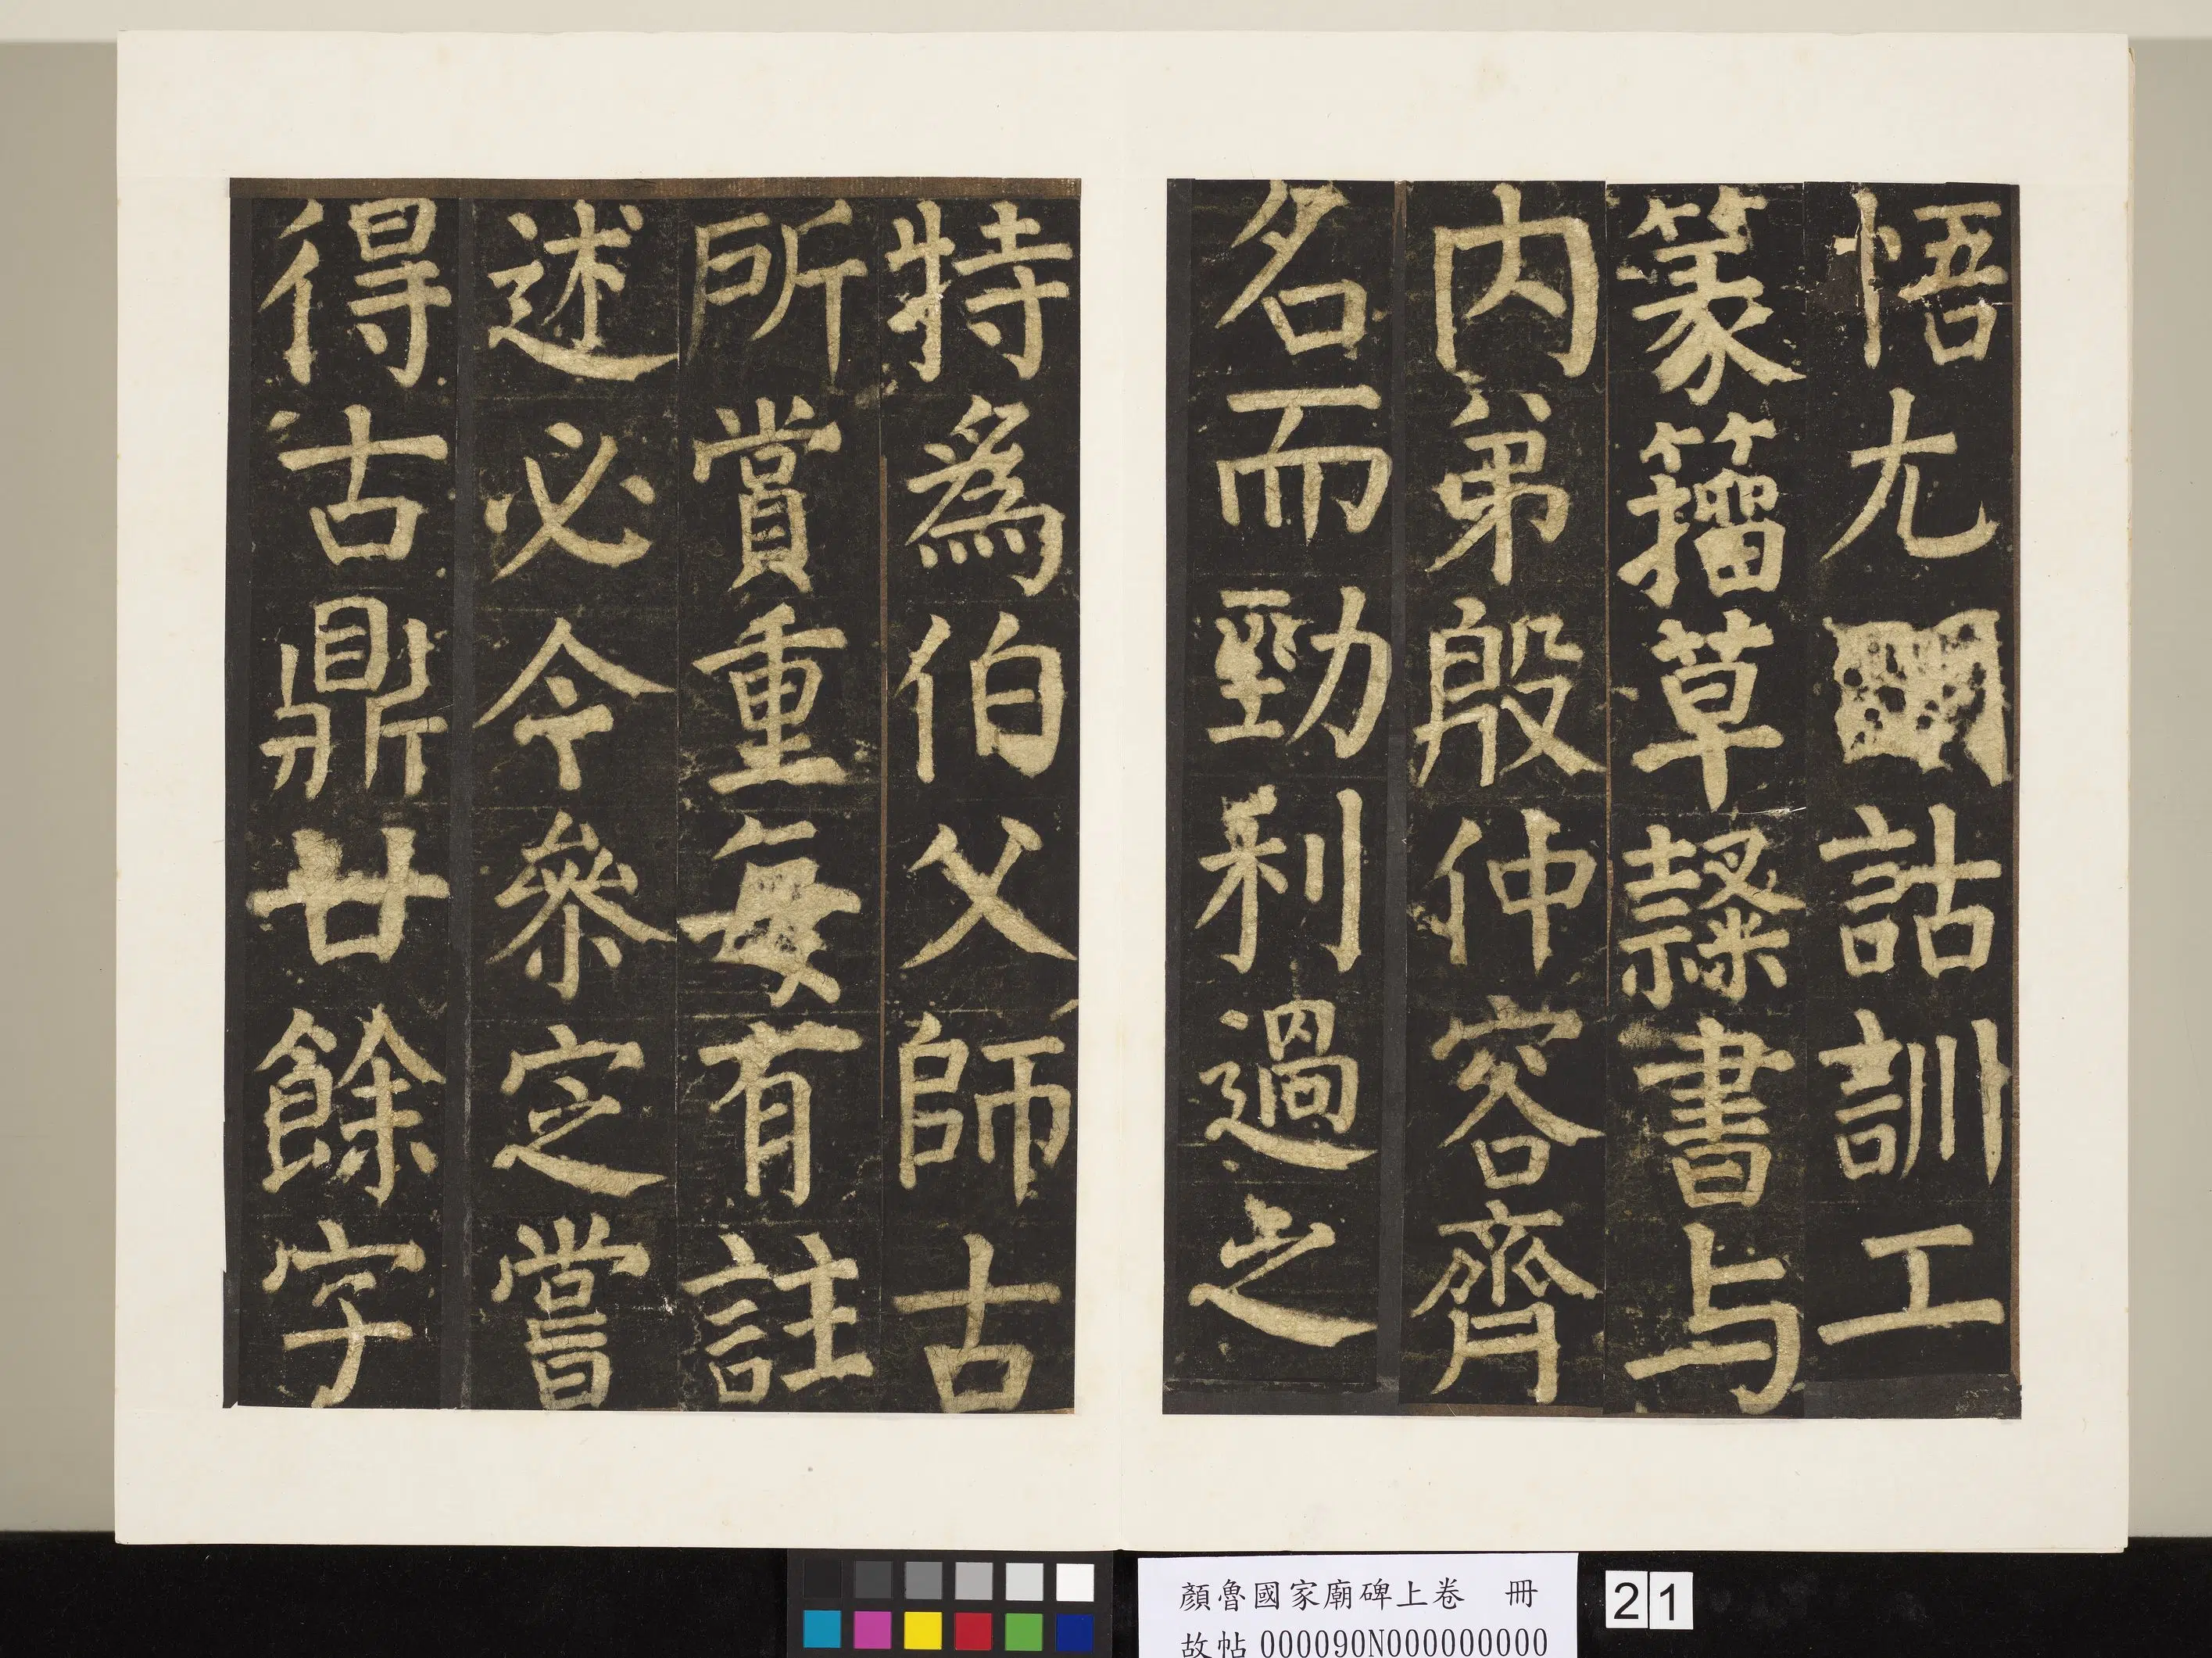 悟尤明詁訓工
篆籀草隸書与
内弟殷仲容齊
名而勁利過之
特為伯父師古
所賞重每有註
述必令參定嘗
得古鼎廿餘字
顏魯國家廟碑上卷 冊
故帖 000090N000000000
21